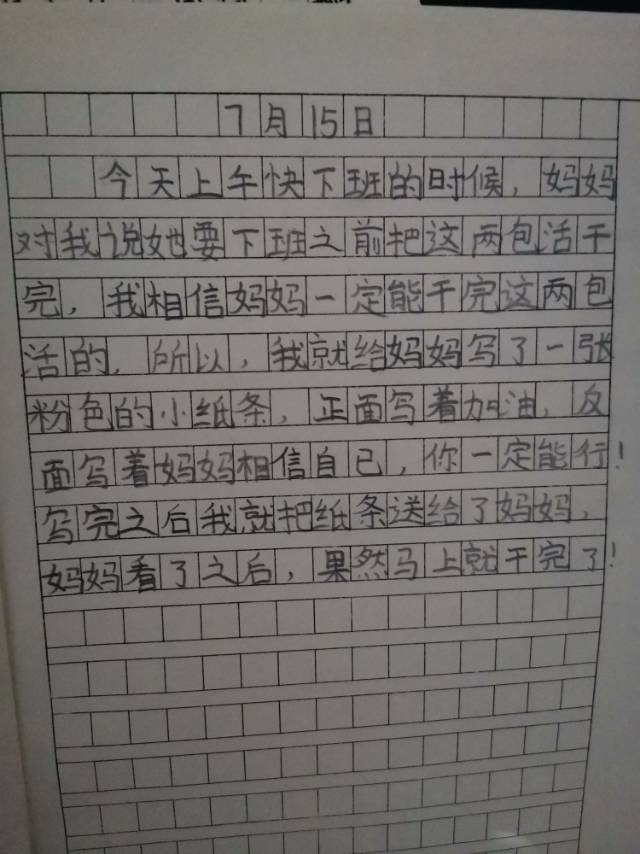 7月15日
今天上午快下班的时候，妈妈
对我说她要下班之前把这两包活干
完，我相信妈妈一定能干完这两包
活的，所以，我就给妈妈写了一张
粉色的小纸条，正面写着加油，反
面写着妈妈相信自己，你一定能行！
写完之后我就把纸条送给了妈妈，
妈妈看了之后，果然马上就干完了！